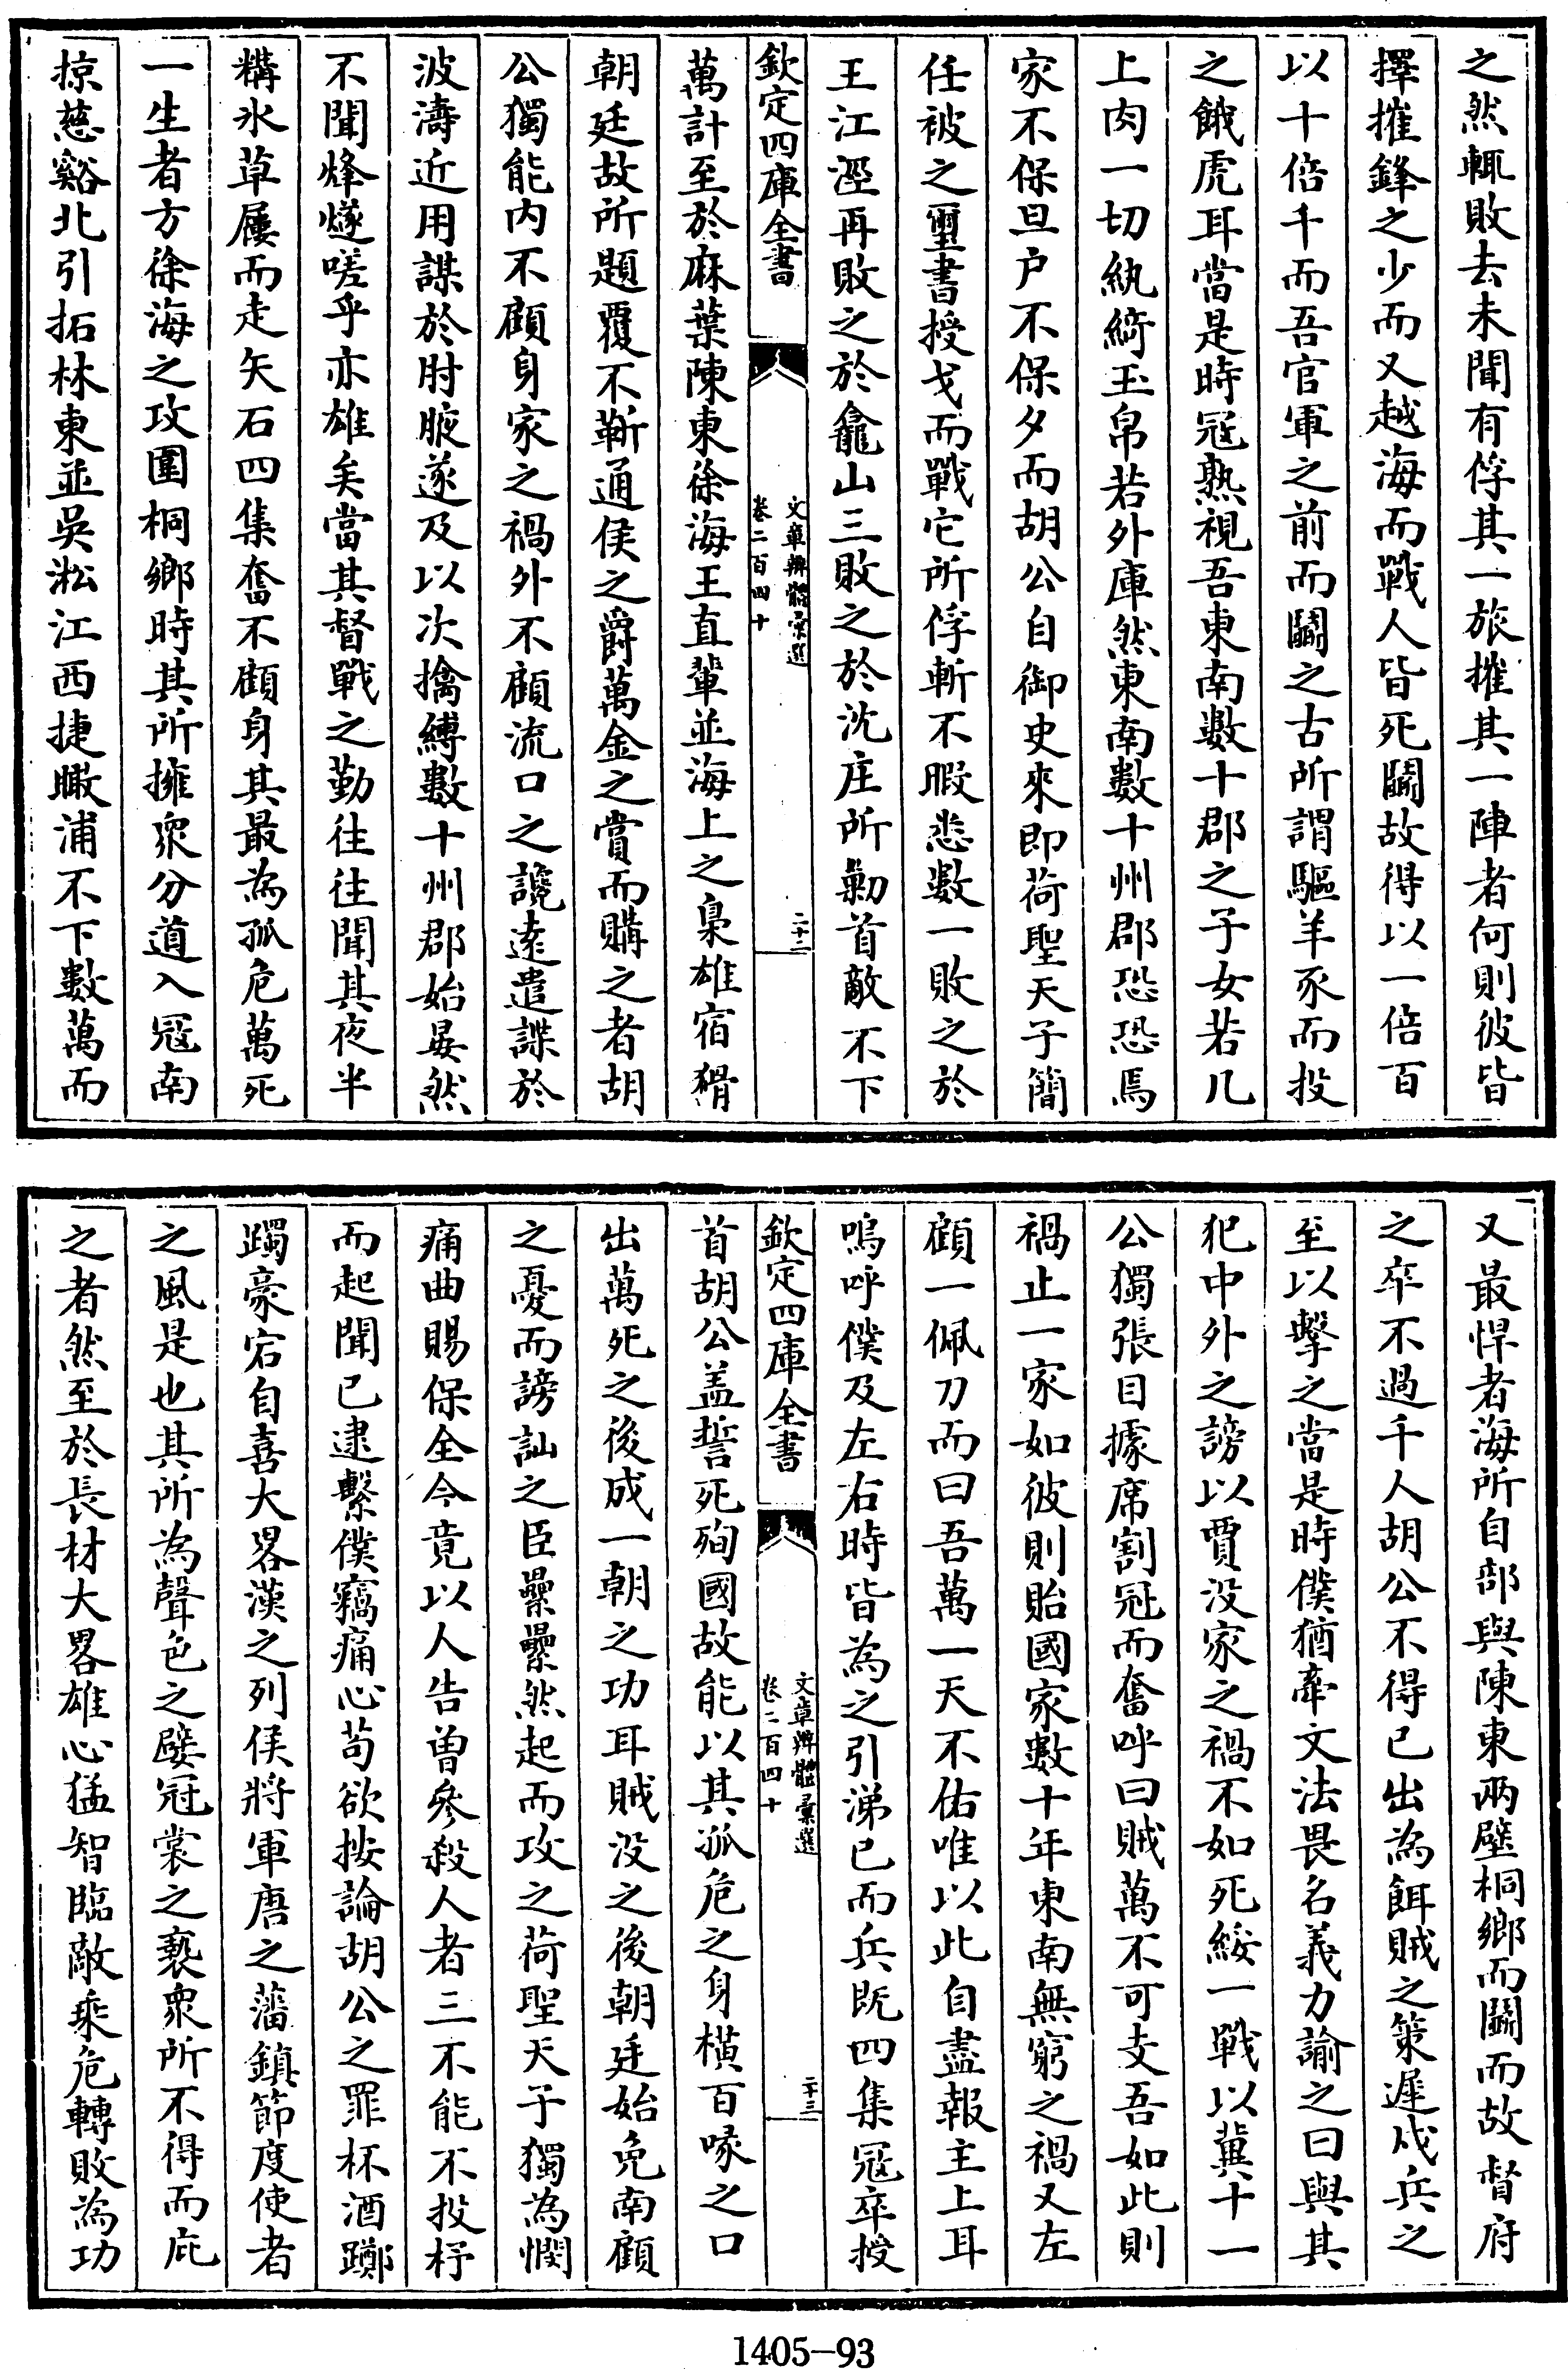 之然輒敗去未聞有俘其一旅摧其一陣者何則彼皆
擇摧鋒之少而又越海而戰人皆死鬬故得以一倍百
以十倍千而吾官軍之前而鬬之古所謂驅羊豕而投
之餓虎耳當是時冦熟視吾東南數十郡之子女若几
上肉一切紈綺玉帛若外庫然東南數十州郡恐恐焉
家不保旦户不保夕而胡公自御史來即荷聖天子簡
任被之璽書授戈而戰它所俘斬不暇悉數一敗之於
王江涇再敗之於龕山三敗之於沈庄所勦首敵不下
欽定四庫全書
文章辨體彙選
卷二百四十
二十二
萬計至於麻葉陳東徐海王直輩並海上之梟雄宿猾
朝廷故所題覆不靳通侯之爵萬金之賞而購之者胡
公獨能内不顧身家之禍外不顧流口之讒遠遣諜於
波濤近用謀於肘腋遂及以次擒縛數十州郡始晏然
不聞烽燧嗟乎亦雄矣當其督戰之勤往往聞其夜半
糒氷草屨而走矢石四集奮不顧身其最為孤危萬死
一生者方徐海之攻圍桐鄉時其所擁衆分道入冦南
掠慈谿北引拓林東並吳淞江西捷瞰浦不下數萬而
又最悍者海所自部與陳東兩壁桐鄉而鬬而故督府
之卒不過千人胡公不得已出為餌賊之策遲戍兵之
至以擊之當是時僕猶牽文法畏名義力諭之曰與其
犯中外之謗以賈没家之禍不如死綏一戰以冀十一
公獨張目據席割冠而奮呼曰賊萬不可支吾如此則
禍止一家如彼則貽國家數十年東南無窮之禍又左
顧一佩刀而曰吾萬一天不佑唯以此自盡報主上耳
嗚呼僕及左右時皆為之引涕已而兵既四集冦卒授
欽定四庫全書
文章辨體彙選
卷二百四十
二十三
首胡公盖誓死殉國故能以其孤危之身横百喙之口
出萬死之後成一朝之功耳賊没之後朝廷始免南顧
之憂而謗訕之臣纍纍然起而攻之荷聖天子獨為憫
痛曲賜保全今竟以人告曽參殺人者三不能不投杼
而起聞已逮繫僕竊痛心苟欲按論胡公之罪杯酒躑
躅豪宕自喜大畧漢之列侯將軍唐之藩鎮節度使者
之風是也其所為聲色之嬖冠裳之褻衆所不得而庇
之者然至於長材大畧雄心猛智臨敵乘危轉敗為功
1405-93